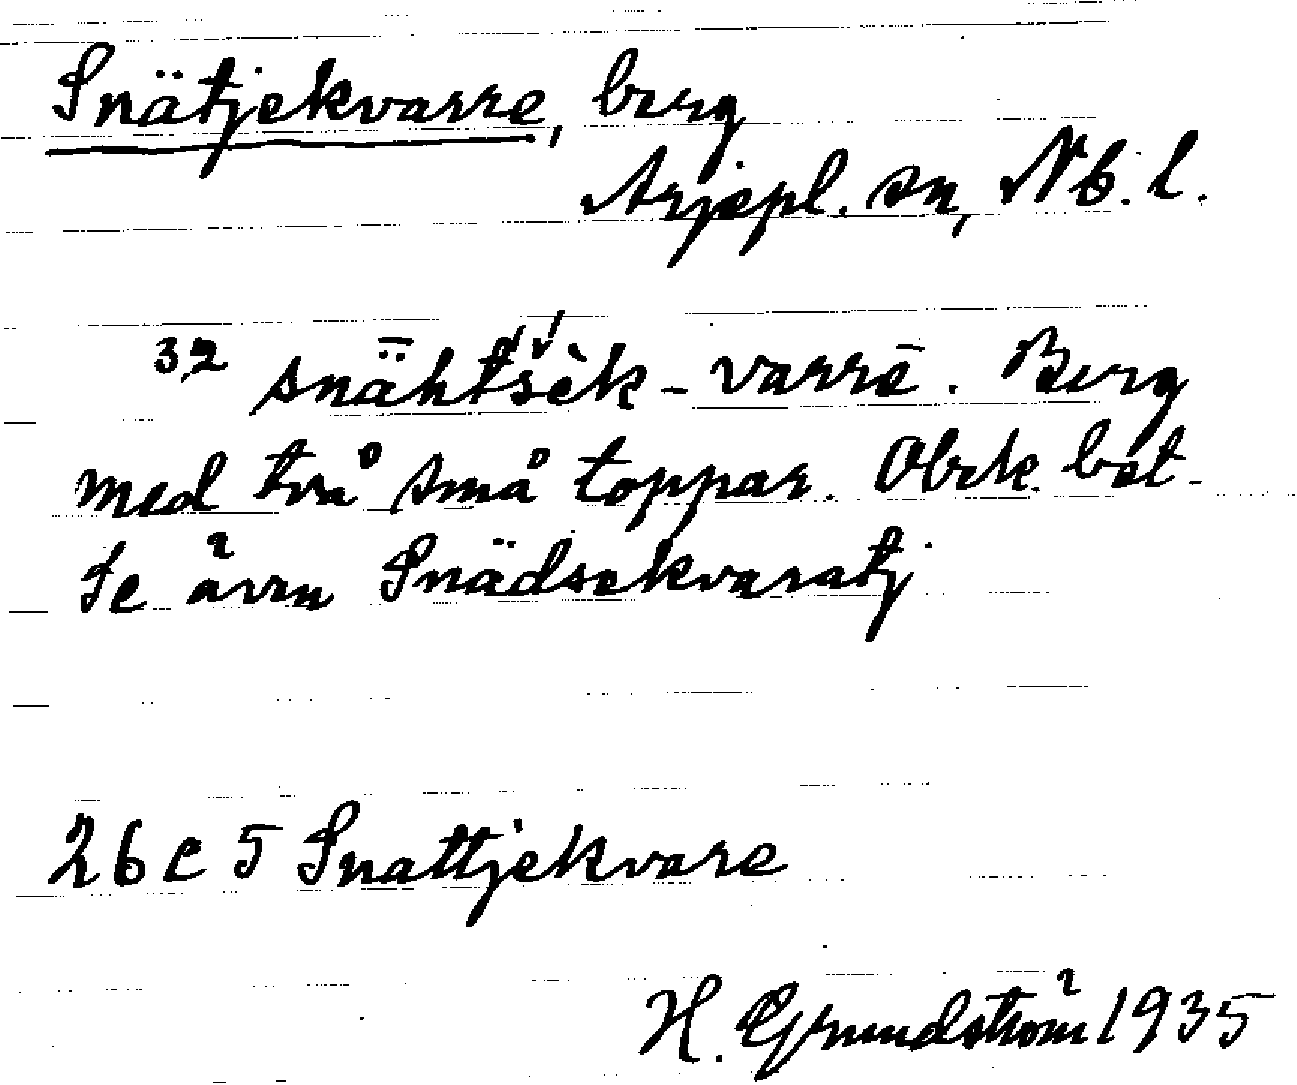 Snätjekvarre, berg
Arjepl. sn, Nb. l.
32 snǟhtśĕ̀k-varrē. Berg
med två små toppar. Obek. bet.
Se även Snädsekvaratj
26 c 5 Snattjekvare
H. Grundström 1935